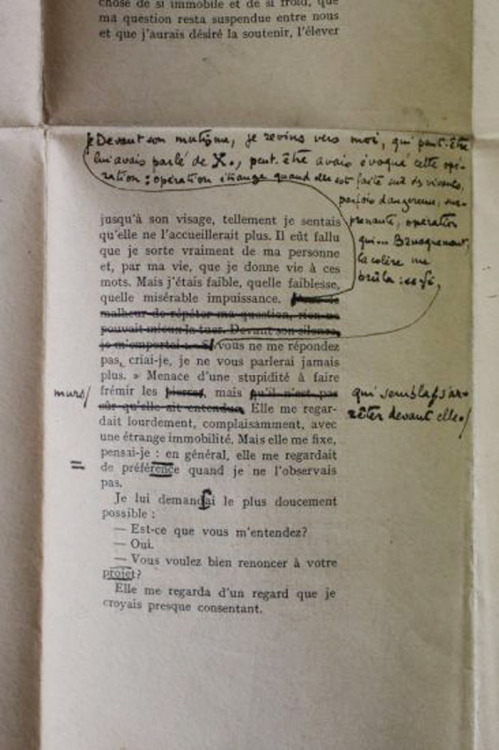 chose de si immobile et de si froid, que
ma question resta suspendue entre nous
et que j'aurais désiré la soutenir, l'élever
Devant son mutisme, je revins vers moi, qui peut-être
lui avais parlé de X., peut-être avais évoqué cette opé-
ration : opération étrange quand elle est faite sur des vivants,
parfois dangereuse, sur-
prenante, opération
qui... Brusquement,
la colère me
brûla :
jusqu'à son visage, tellement je sentais
qu'elle ne l'accueillerait plus. Il eût fallu
que je sorte vraiment de ma personne
et, par ma vie, que je donne vie à ces
mots. Mais j'étais faible, quelle faiblesse,
quelle misérable impuissance. J'eus le
malheur de répéter ma question, rien ne
pouvait mieux la tuer. Devant son silence,
je m'emportai : « Si vous ne me répondez
pas, criai-je, je ne vous parlerai jamais
plus. » Menace d'une stupidité à faire
murs/
frémir les pierres, mais qu'il n'est pas
qui semblait s'ar-
rêter devant elle./
sûr qu'elle ait entendue. Elle me regar-
dait lourdement, complaisamment, avec
une étrange immobilité. Mais elle me fixe,
pensai-je : en général, elle me regardait
=
de préférence quand je ne l'observais
pas.
Je lui demandai le plus doucement
possible :
— Est-ce que vous m'entendez?
— Oui.
— Vous voulez bien renoncer à votre
projet?
Elle me regarda d'un regard que je
croyais presque consentant.